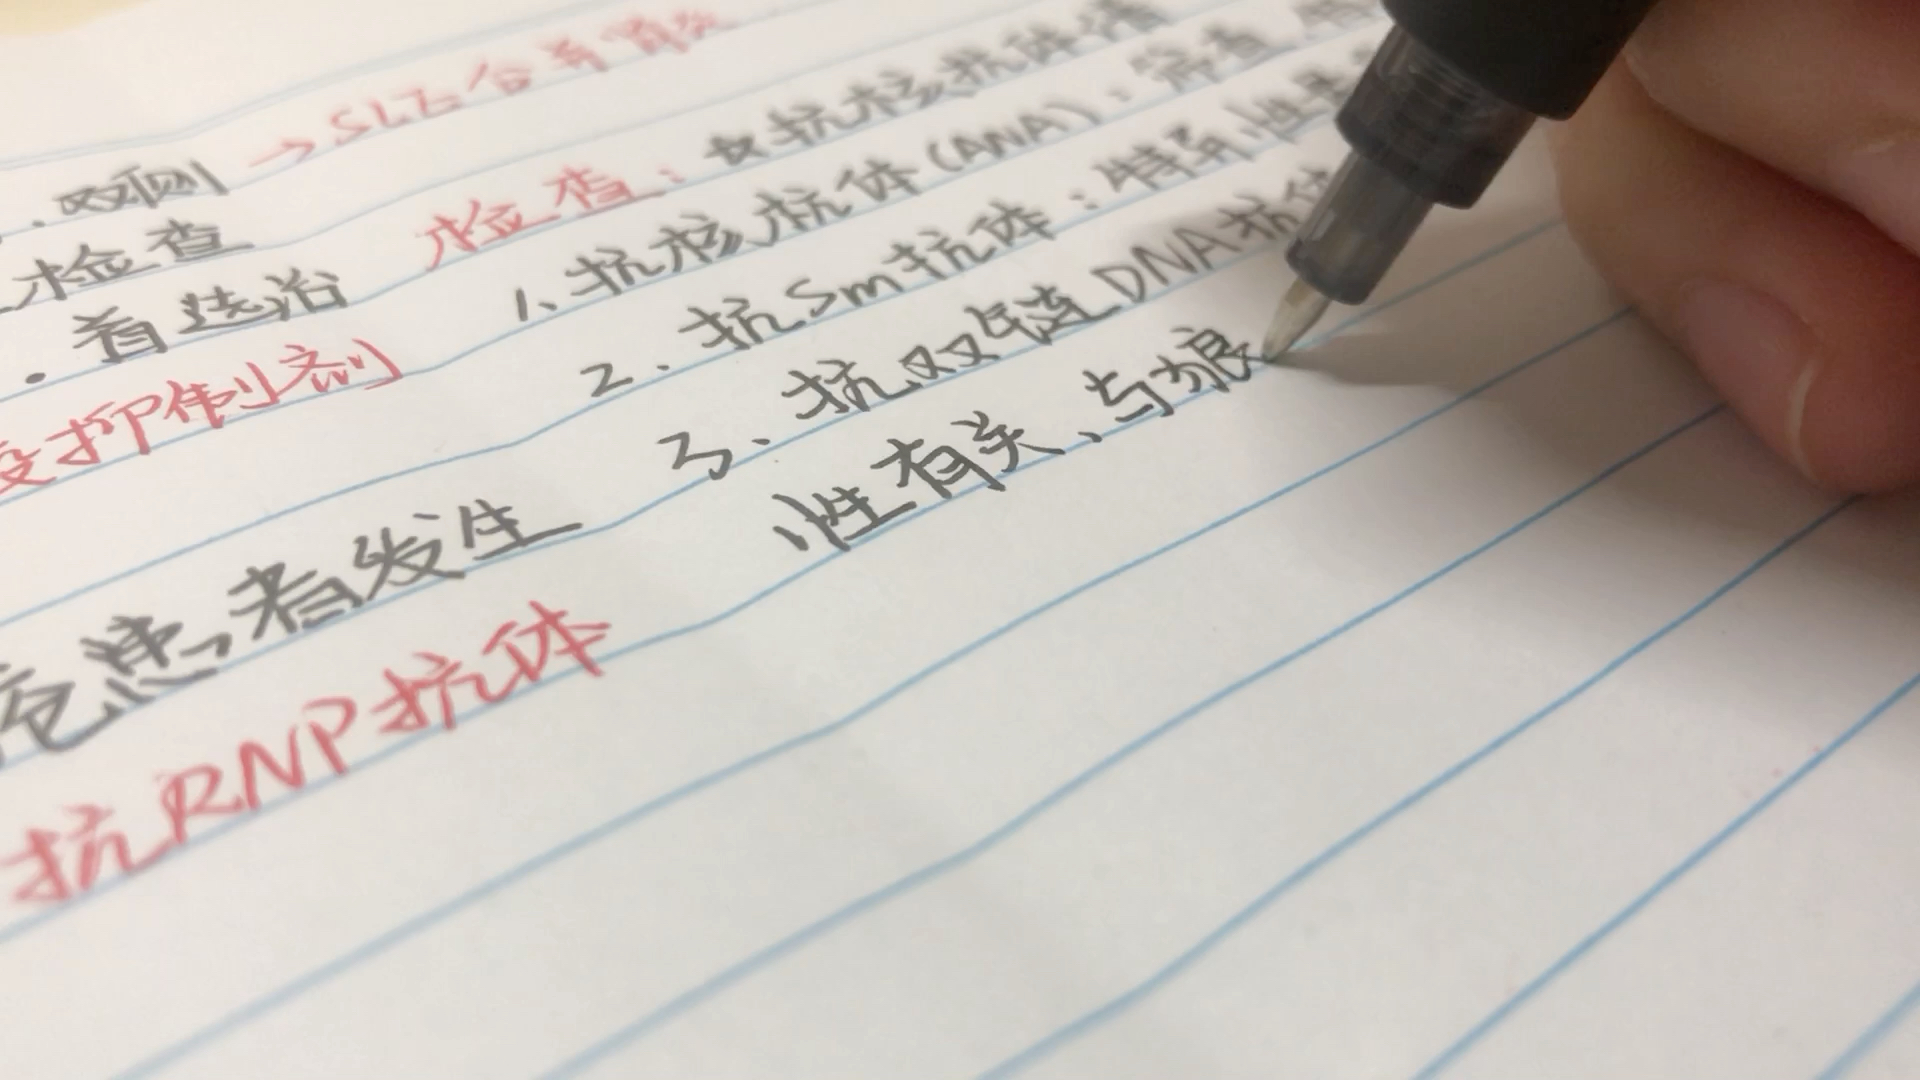 双侧 → SLE合并
检查 检查：抗核抗体谱
首选治 1、抗核抗体(ANA)：筛查
抑制剂 2.抗Sm抗体：特异性
3.抗双链DNA抗体
患者发生 性有关、与狼
抗RNP抗体